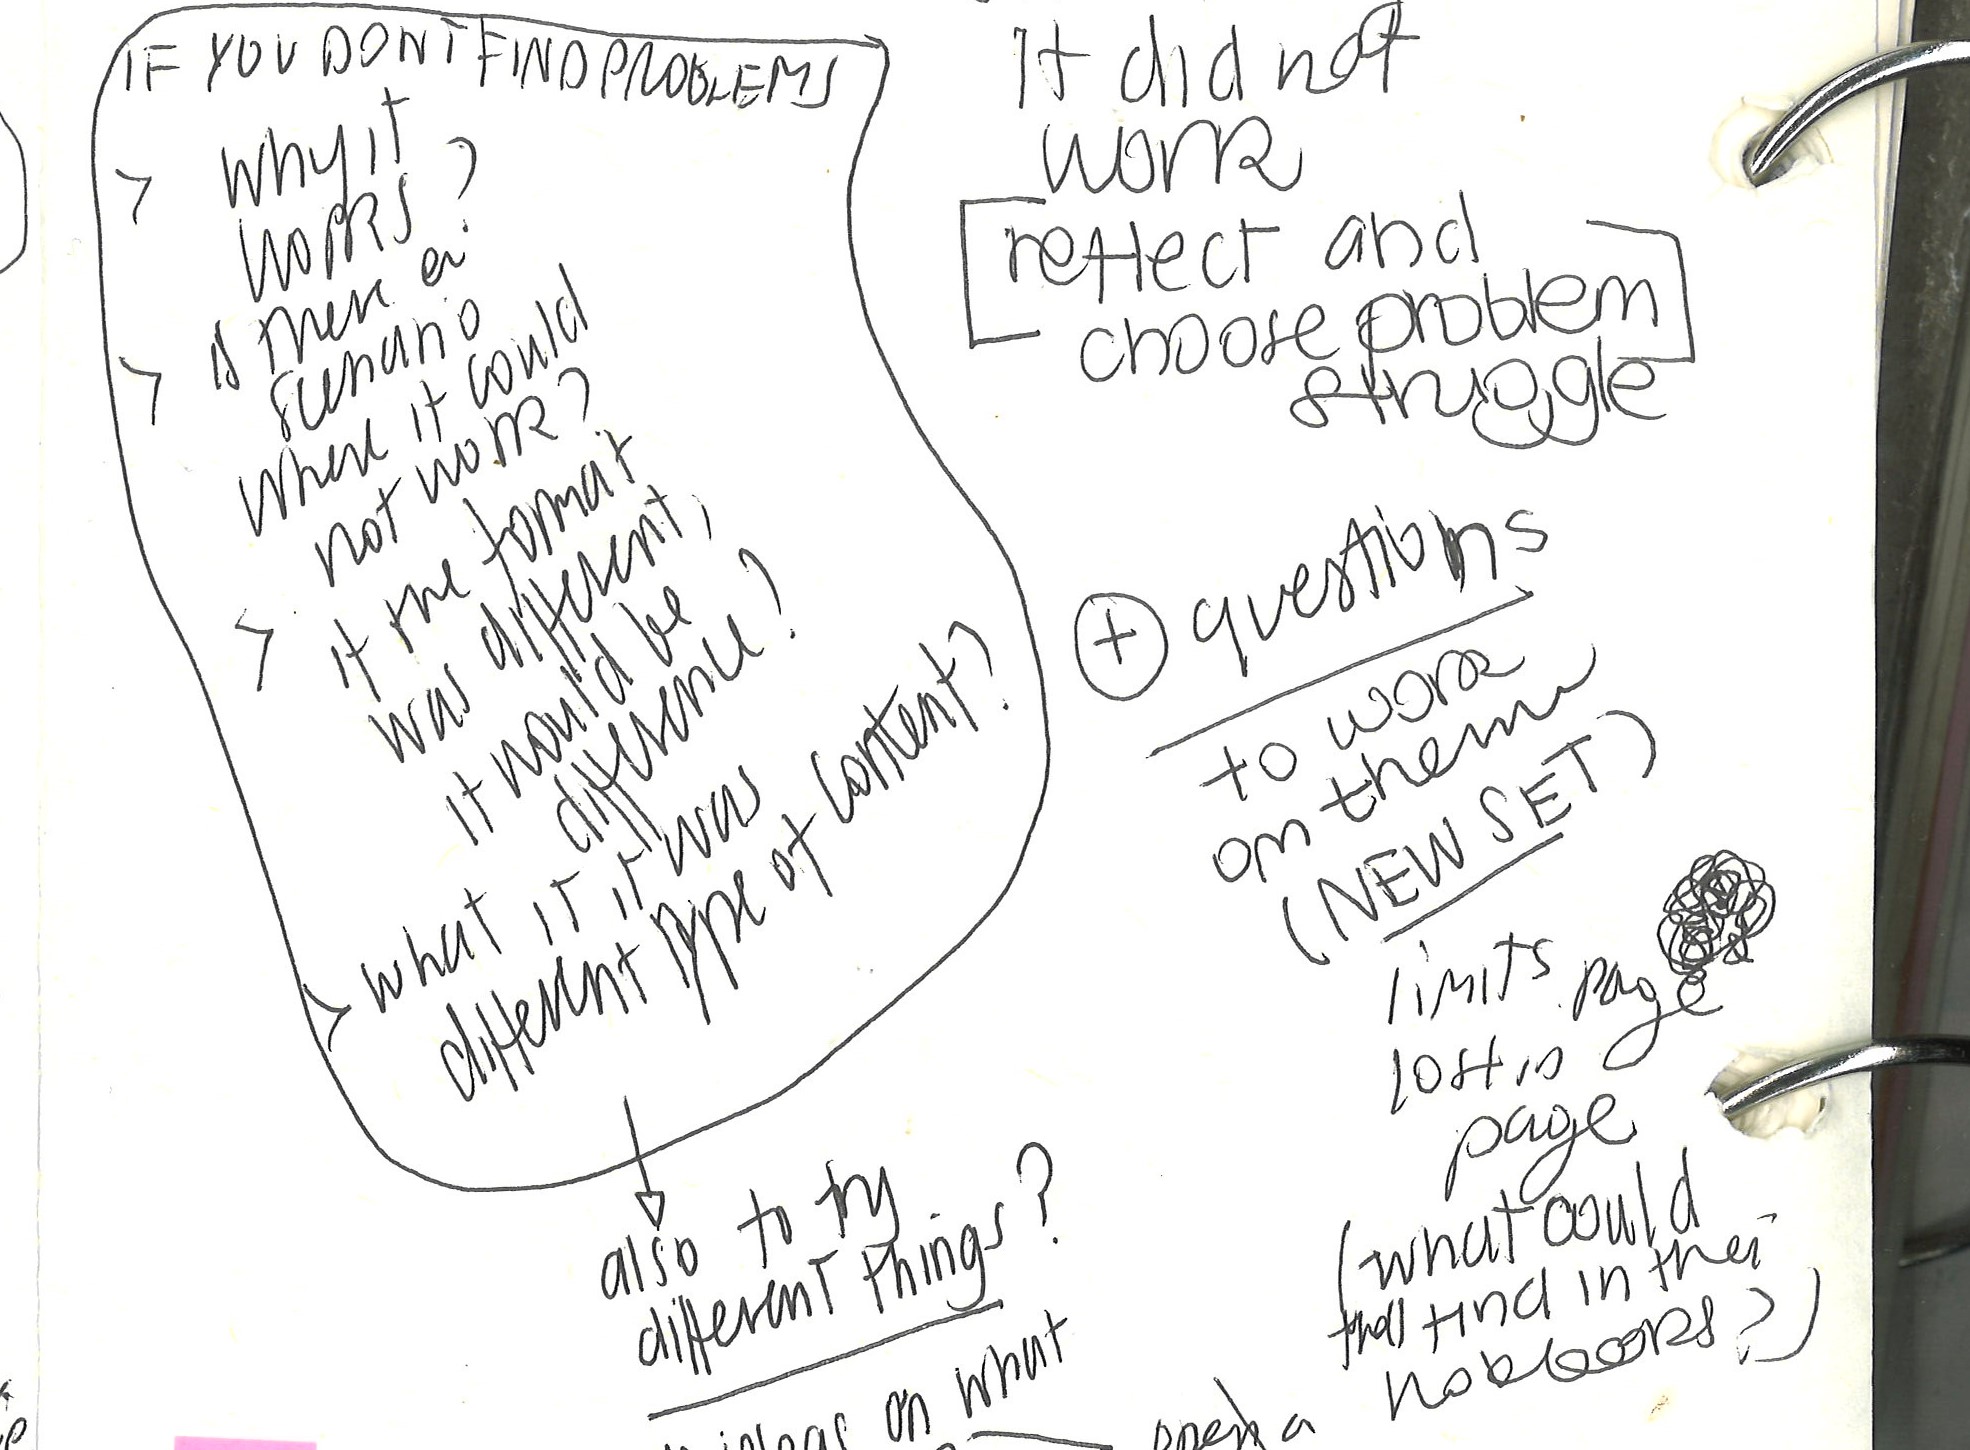 IF YOU DON'T FIND PROBLEMS
> why it
works?
> is there a
scenario
where it could
not work?
> if the format
was different,
it would be
difference?
> what if it was
different type of content?
also to try
different things?
ideas on what
open a
it did not
work
[reflect and
choose problem]
struggle
+ questions
to work
on them
(NEW SET)
limits page
lost in
page
(what could
find in their